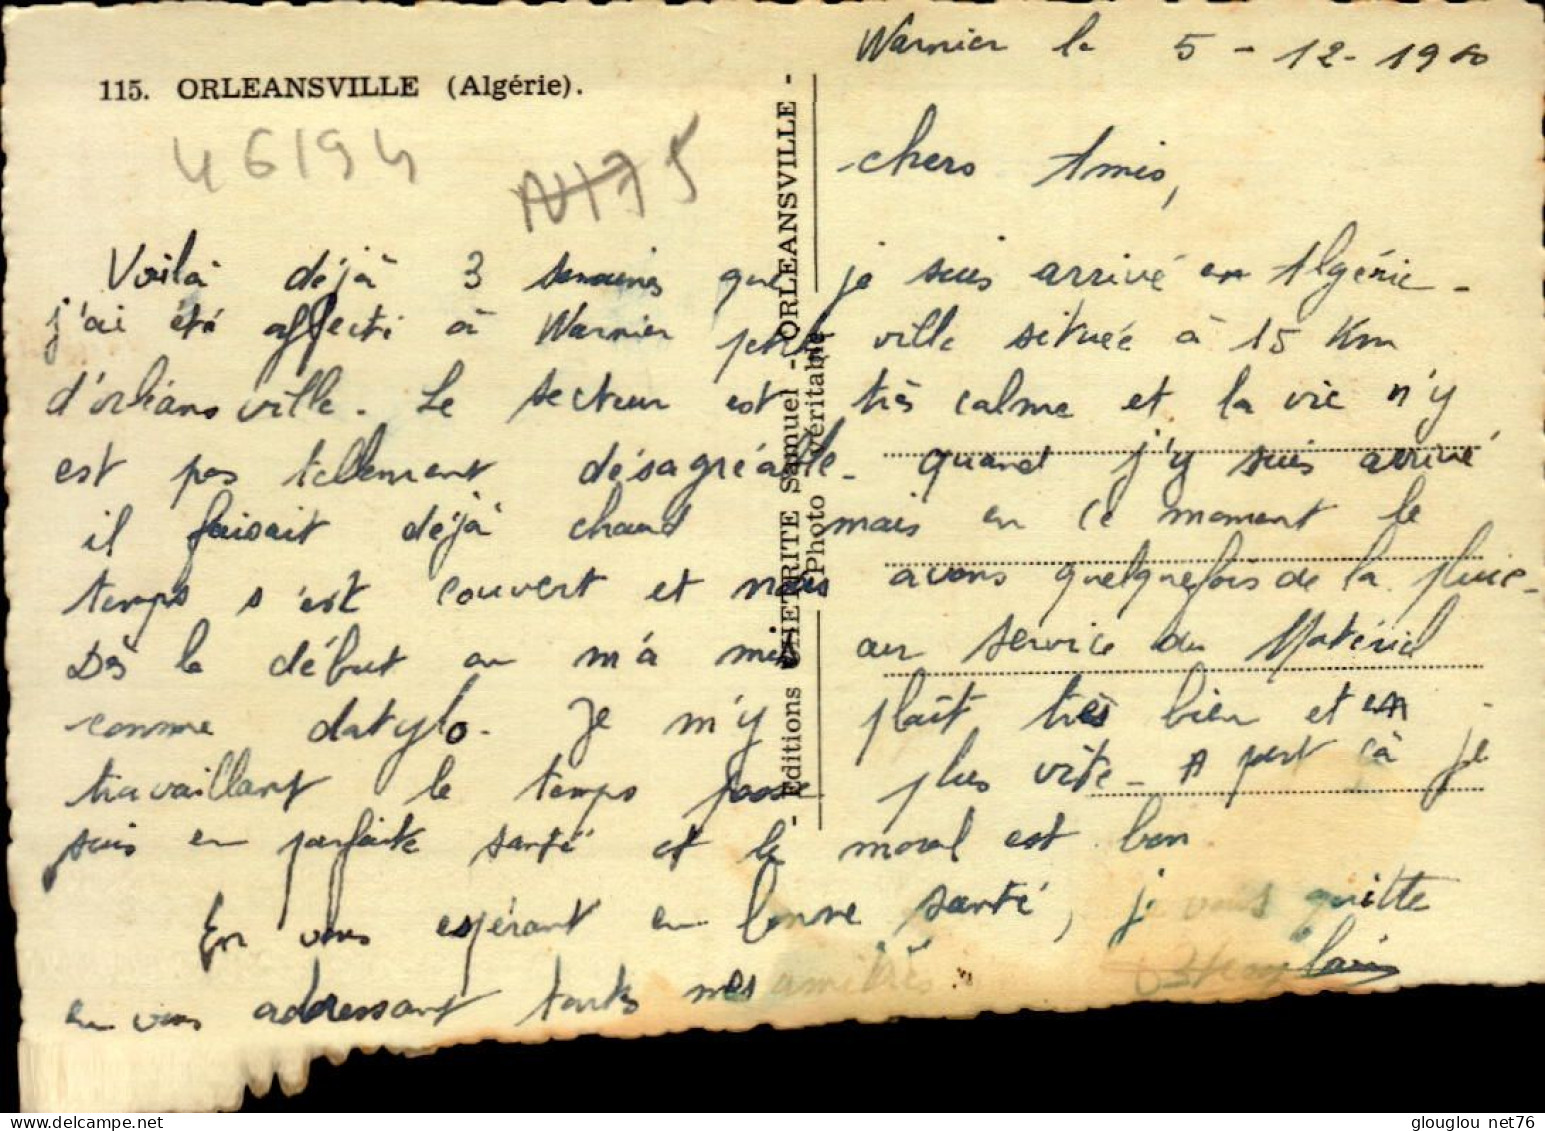 Warnier le 5 - 12 - 1960
115. ORLEANSVILLE (Algérie).
46194
N175
chers Amis,
Voilà déjà 3 semaines que je suis arrivé en Algérie -
j'ai été affecté à Warnier petite ville située à 15 Km
d'orléansville. Le secteur est très calme et la vie n'y
est pas tellement désagréable - quand j'y suis arrivé
il faisait déjà chaud mais en ce moment le
temps s'est couvert et nous avons quelquefois de la pluie -
Dès le début on m'a mis au service du Matériel
comme datylo. Je m'y plaît très bien et en
travaillant le temps passe plus vite - A part çà je
suis en parfaite santé et le moral est bon
En vous espérant en bonne santé, je vous quitte
en vous adressant toutes mes amitiés
Editions CHETRITE Samuel - ORLEANSVILLE -
Photo véritable
glouglou net76